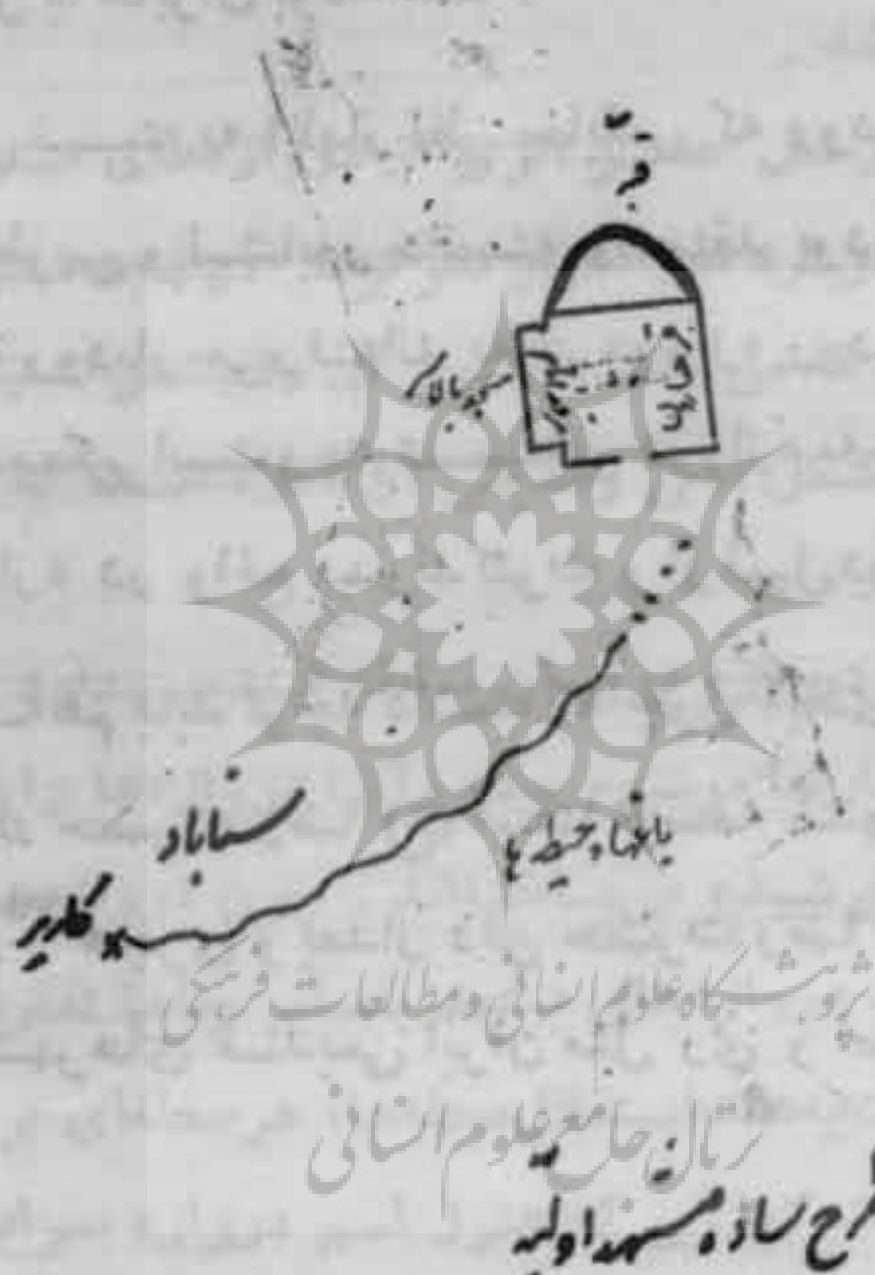 قبه
مسجد بالاسر
سناباد
باغها و حیطه ها
کاریز
پژوهشگاه علوم انسانی و مطالعات فرهنگی
پرتال جامع علوم انسانی
طرح ساده مشهد اولیه